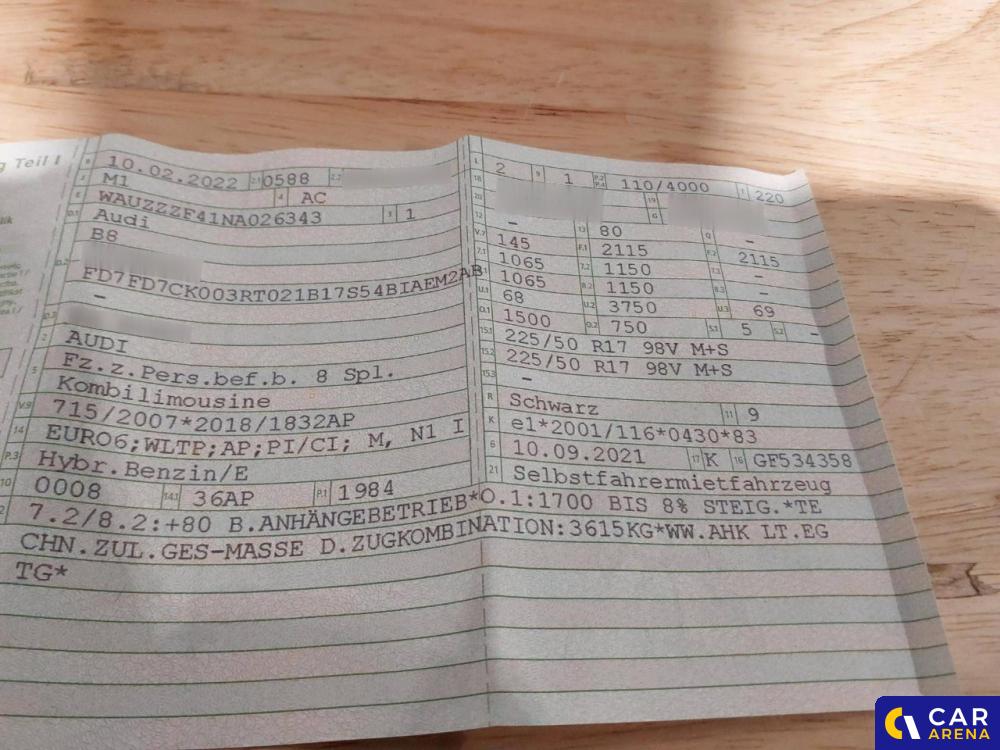 g Teil I
B 10.02.2022 2.1 0588 2.2
J M1 4 AC
E WAUZZZF41NA026343 3 1
D.1 Audi
B8
D.2
FD7FD7CK003RT021B17S54BIAEM2AB
–
D.3
2 AUDI
5 Fz.z.Pers.bef.b. 8 Spl.
Kombilimousine
V.9 715/2007*2018/1832AP
14 EURO6;WLTP;AP;PI/CI; M, N1 I
P.3 Hybr.Benzin/E
10 0008 14.1 36AP P.1 1984
L 2 9 1 P.2 P.4 110/4000 T 220
18 19
20 G
12 – 13 80 Q –
V.7 145 F.1 2115 F.2 2115
7.1 1065 7.2 1150 7.3 –
8.1 1065 8.2 1150 8.3 –
U.1 68 U.2 3750 U.3 69
O.1 1500 O.2 750 S.1 5 S.2 –
15.1 225/50 R17 98V M+S
15.2 225/50 R17 98V M+S
15.3 –
R Schwarz 11 9
K e1*2001/116*0430*83
6 10.09.2021 17 K 16 GF534358
21 Selbstfahrermietfahrzeug
7.2/8.2:+80 B.ANHÄNGEBETRIEB*O.1:1700 BIS 8% STEIG.*TE
CHN.ZUL.GES-MASSE D.ZUGKOMBINATION:3615KG*WW.AHK LT.EG
TG*
CAR
ARENA